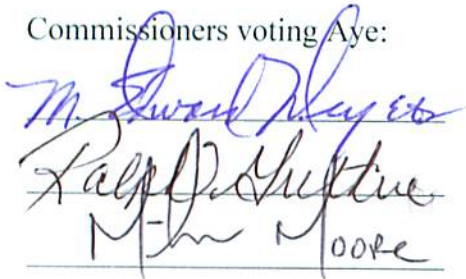 Commissioners voting Aye:
M. Edward Meyers
Ralph D.
Moore